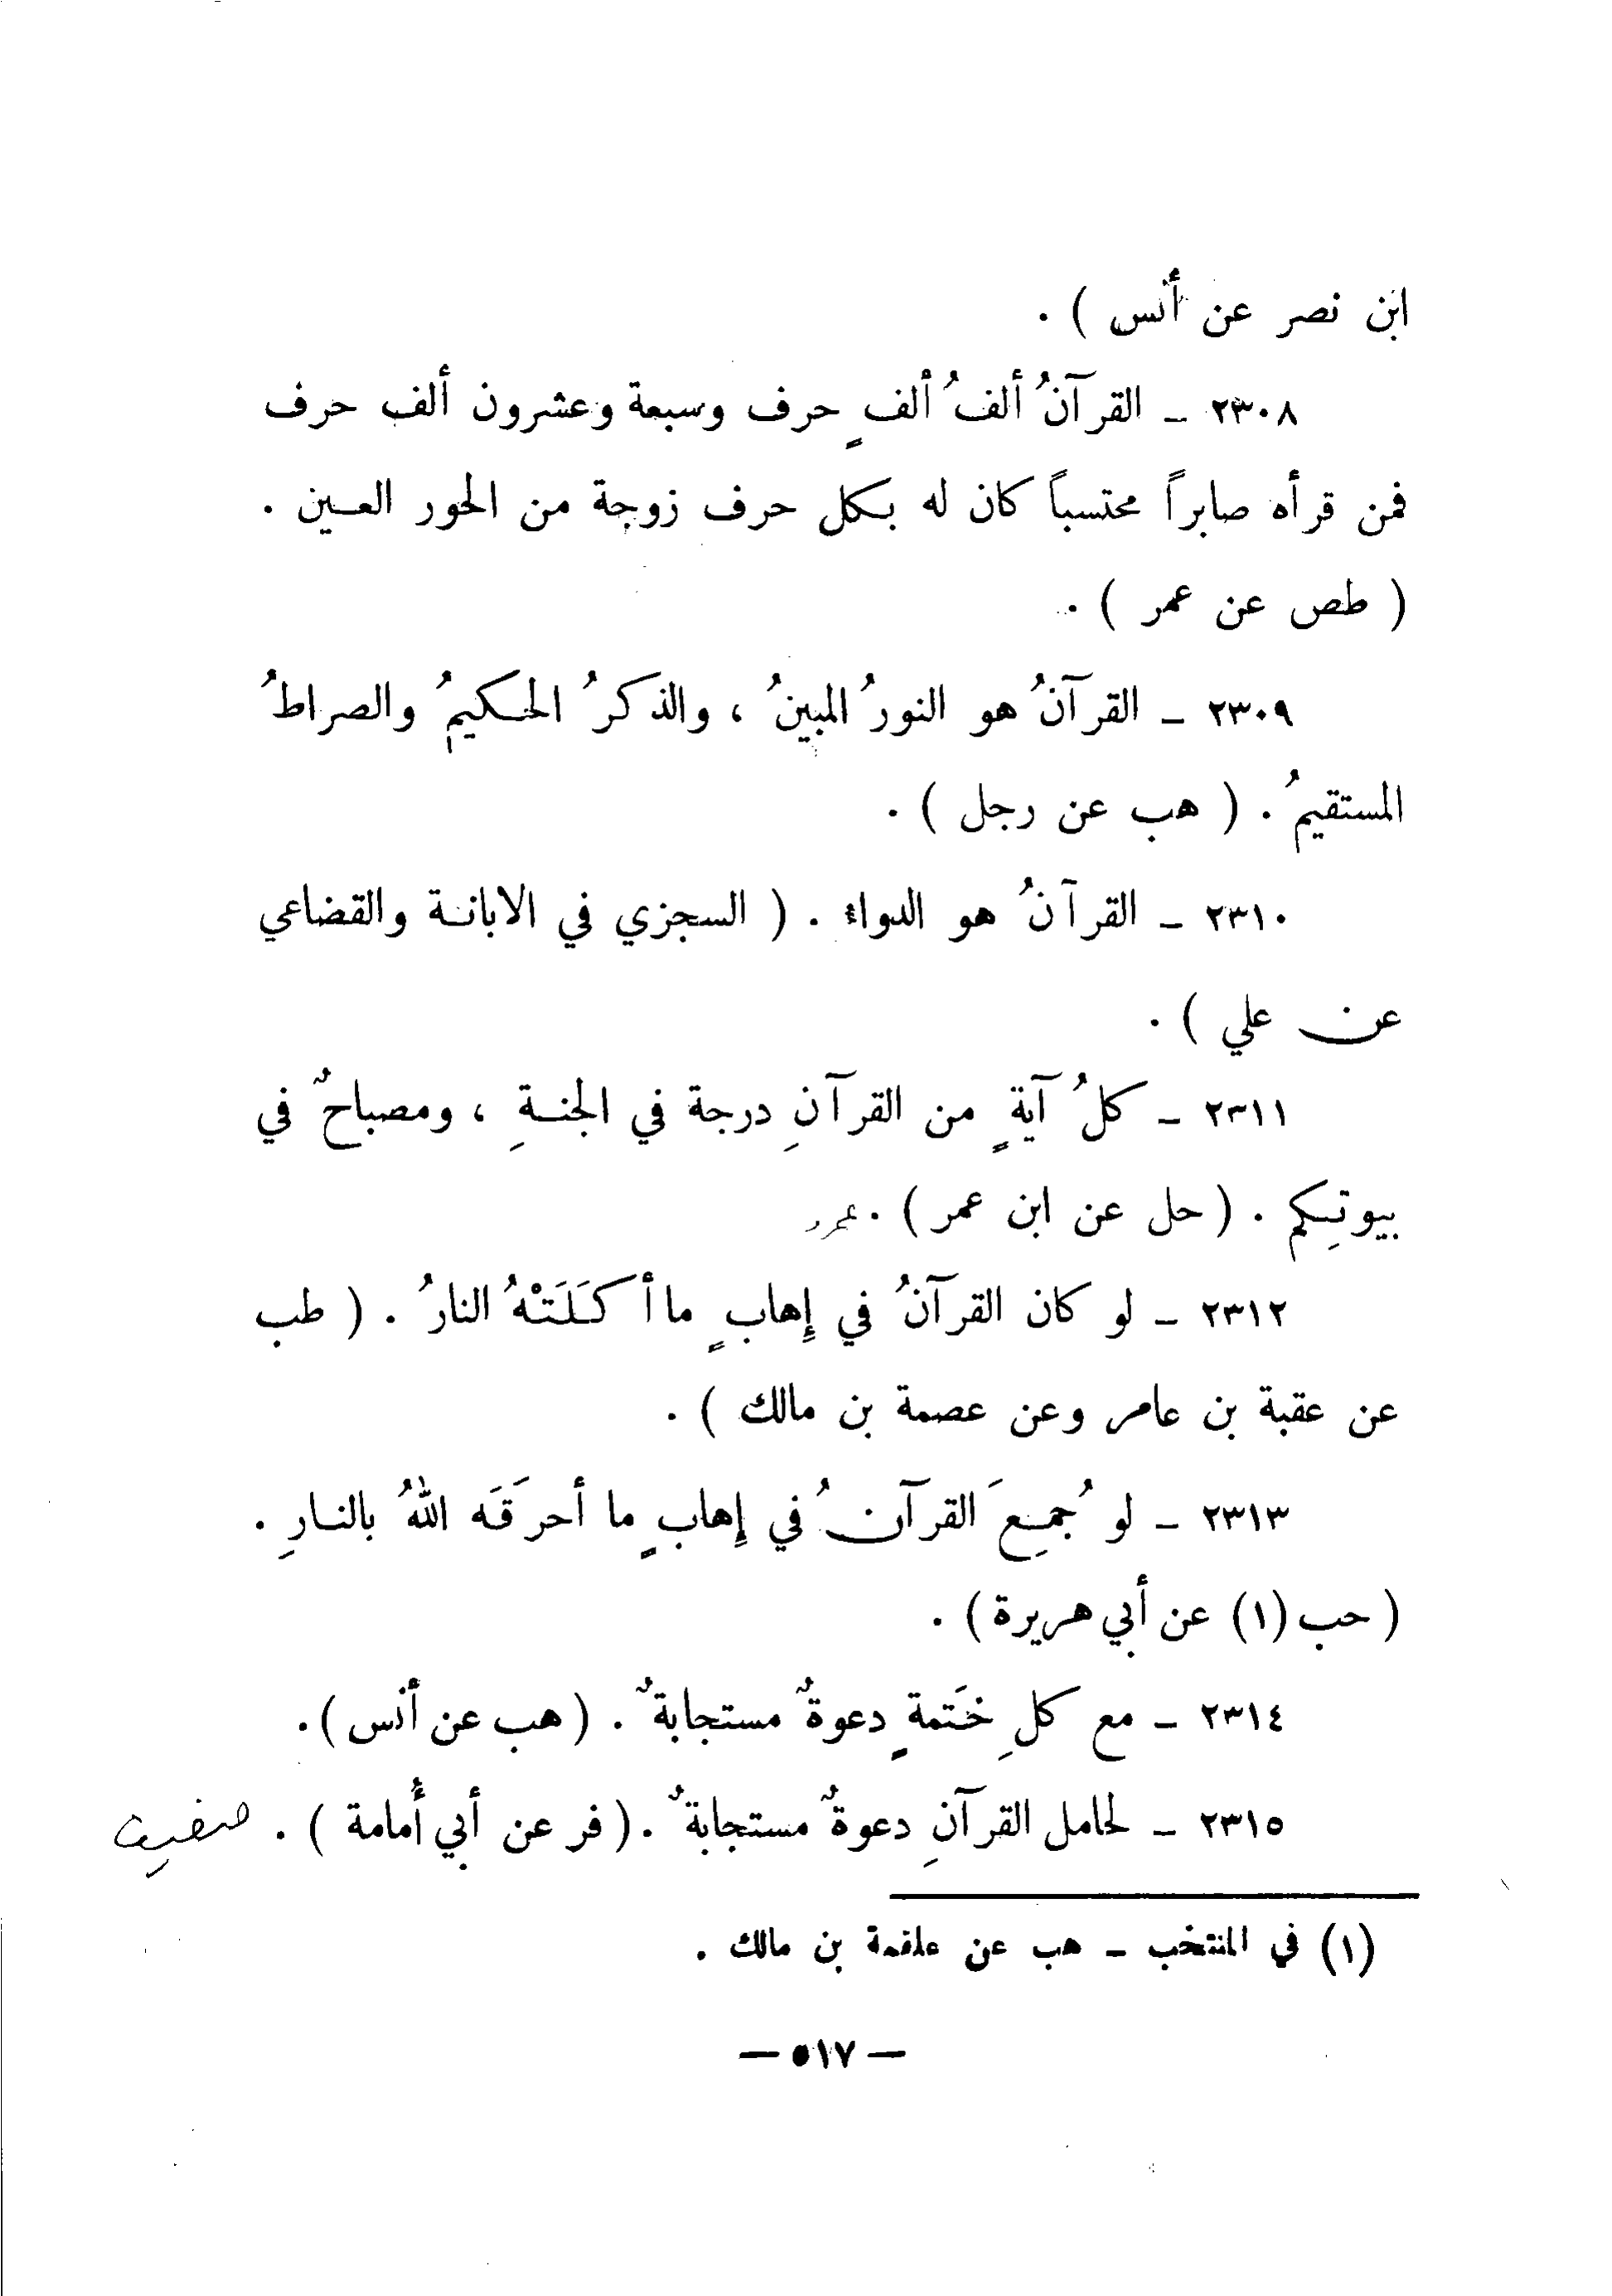 ابن نصر عن أنس ) .
٢٣٠٨ ـ القرآنُ ألفُ ألفٍ حرف وسبعة وعشرون ألف حرف
فمن قرأه صابراً محتسباً كان له بكل حرف زوجة من الحور العين .
( طص عن عمر ) .
٢٣٠٩ ـ القرآنُ هو النورُ المبينُ ، والذكرُ الحكيمُ والصراطُ
المستقيمُ . ( هب عن رجل ) .
٢٣١٠ ـ القرآنُ هو الدواء . ( السجزي في الابانة والقضاعي
عن علي ) .
٢٣١١ ـ كلُ آيةٍ من القرآنِ درجة في الجنةِ ، ومصباحٌ في
بيوتِكم . ( حل عن ابن عمر ) .
٢٣١٢ ـ لو كان القرآنُ في إِهابٍ ما أكَلَتْهُ النارُ . ( طب
عن عقبة بن عامر وعن عصمة بن مالك ) .
٢٣١٣ ـ لو جُمِعَ القرآنُ في إِهابٍ ما أحرقَه اللهُ بالنارِ .
( حب (١) عن أبي هريرة ) .
٢٣١٤ ـ مع كلِ خَتمةٍ دعوةٌ مستجابةٌ . ( هب عن أنس ) .
٢٣١٥ ـ لحامل القرآنِ دعوةٌ مستجابةٌ . ( فر عن أبي أُمامة ) .
(١) في المنتخب ـ هب عن علقمة بن مالك .
— ٥١٧ —